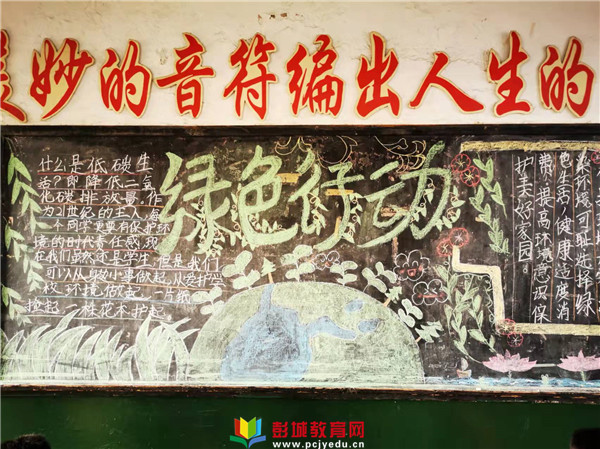 妙的音符编出人生的
绿色行动
什么是低碳生
活?即降低二氧
化碳排放量。作
为21世纪的主人,每
一个同学更要有保护环
境的时代责任感,现
在我们虽然还是学生,但是我们
可以从小事做起,从爱护学
校环境做起。一片纸
捡起,一株花木护起
染环境可耻选择绿
色生活,健康适度消
带,提高环境意识保
护美好家园。
彭城教育网
www.pcjyedu.cn